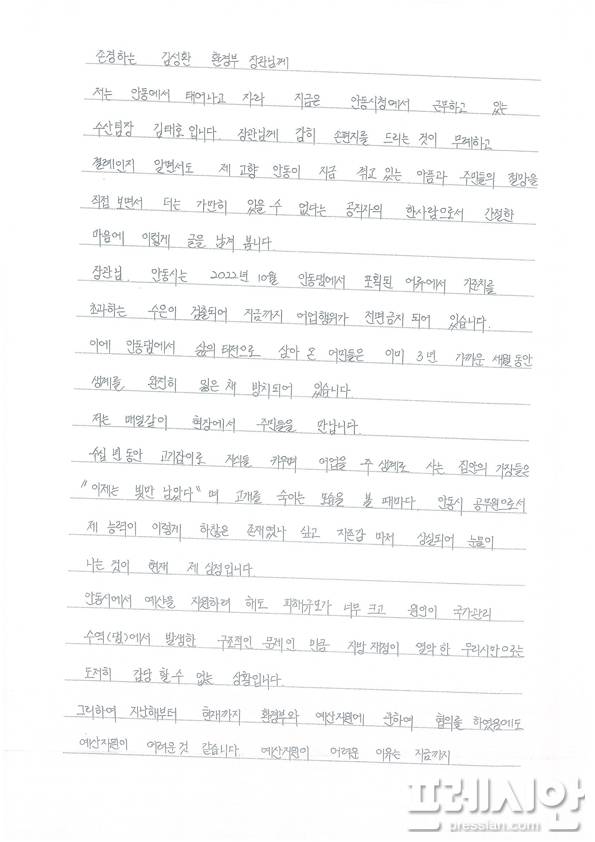 존경하는 김성환 환경부 장관님께
저는 안동에서 태어나고 자라 지금은 안동시청에서 근무하고 있는
수산팀장 김태호입니다. 장관님께 감히 손편지를 드리는 것이 무례하고
결례인지 알면서도 제 고향 안동이 지금 겪고 있는 아픔과 주민들의 절망을
직접 보면서 더는 가만히 있을 수 없다는 공직자의 한사람으로서 간절한
마음에 이렇게 글을 남겨 봅니다.
장관님. 안동시는 2022년 10월 안동댐에서 포획된 어류에서 기준치를
초과하는 수은이 검출되어 지금까지 어업행위가 전면금지 되어 있습니다.
이에 안동댐에서 삶의 터전으로 살아 온 어민들은 이미 3년 가까운 세월 동안
생계를 완전히 잃은 채 방치되어 있습니다.
저는 매일같이 현장에서 주민들을 만납니다.
수십 년 동안 고기잡이로 자식들 키우며 어업을 주 생계로 사는 집안의 가장들은
"이제는 빚만 남았다" 며 고개를 숙이는 모습을 볼 때마다. 안동시 공무원으로서
제 능력이 이렇게 하찮은 존재였나 싶고 자존감 마저 상실되어 눈물이
나는 것이 현재 제 심정입니다.
안동시에서 예산을 지원하려 해도 피해규모가 너무 크고 원인이 국가관리
수역(댐)에서 발생한 구조적인 문제인 만큼 지방 재정이 열악한 우리시만으로는
도저히 감당 할 수 없는 상황입니다.
그리하여 지난해부터 현재까지 환경부와 예산지원에 관하여 협의를 하였음에도
예산지원이 어려운것 같습니다. 예산지원이 어려운 이유는 지금까지
프레시안
pressian.com